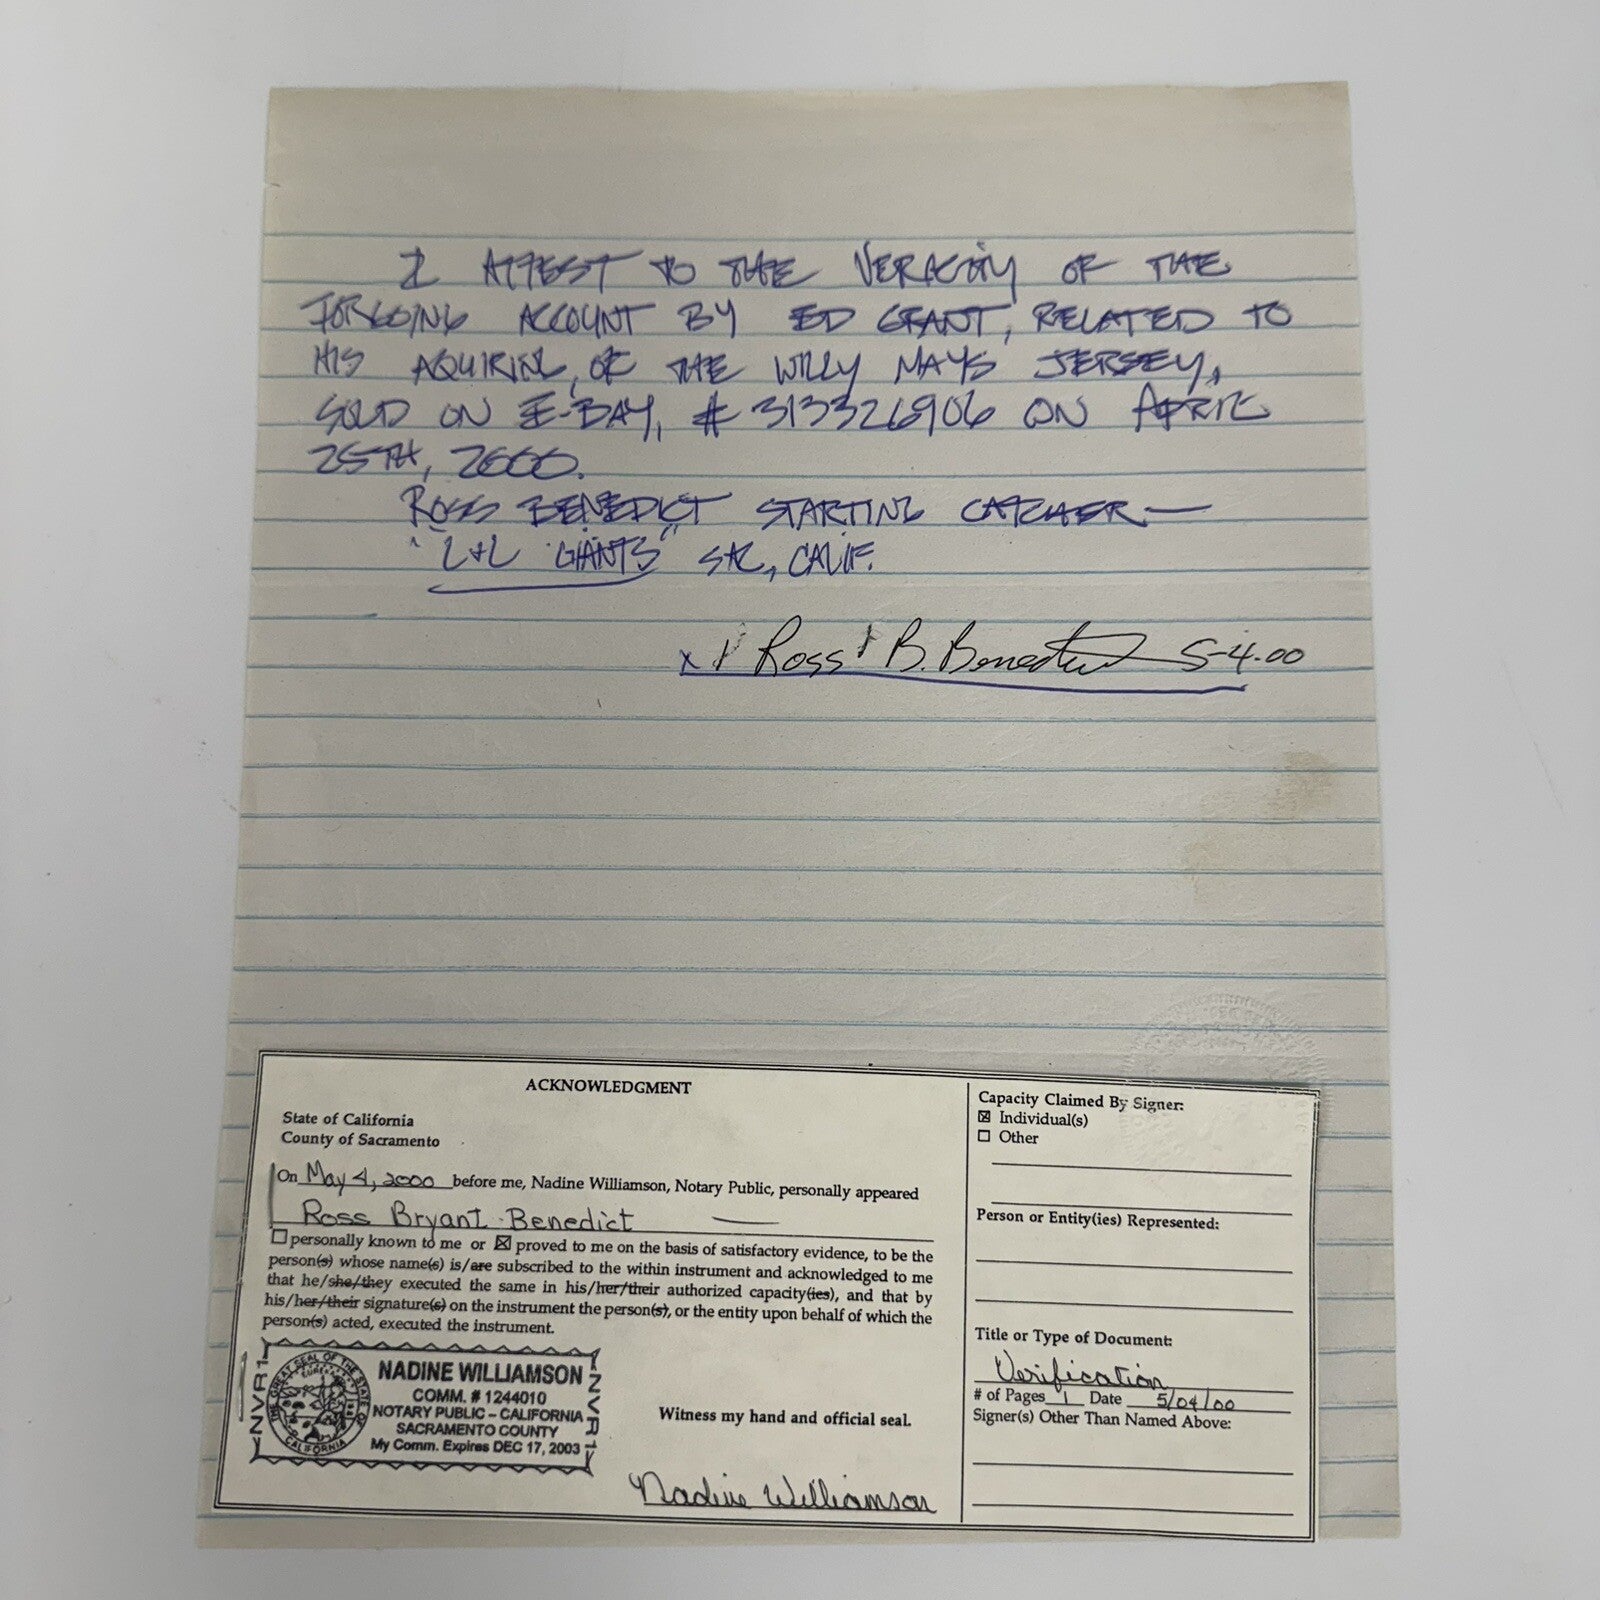 I ATTEST TO THE VERACITY OF THE
FORGOING ACCOUNT BY ED GRANT, RELATED TO
HIS AQUIRING, OF THE WILLY MAYS JERSEY,
SOLD ON E-BAY, # 313326906 ON APRIL
25TH, 2000.
ROSS BENEDICT STARTING CATCHER—
"L+L GIANTS" SAC, CALIF.
x Ross B. Benedict 5-4-00
ACKNOWLEDGMENT
State of California
County of Sacramento
On May 4, 2000 before me, Nadine Williamson, Notary Public, personally appeared
Ross Bryant Benedict —
☐ personally known to me or ☒ proved to me on the basis of satisfactory evidence, to be the
person(s) whose name(s) is/are subscribed to the within instrument and acknowledged to me
that he/she/they executed the same in his/her/their authorized capacity(ies), and that by
his/her/their signature(s) on the instrument the person(s), or the entity upon behalf of which the
person(s) acted, executed the instrument.
NVR1
THE GREAT SEAL OF THE STATE OF CALIFORNIA
EUREKA
NADINE WILLIAMSON
COMM. # 1244010
NOTARY PUBLIC – CALIFORNIA
SACRAMENTO COUNTY
My Comm. Expires DEC 17, 2003
NVR1
Witness my hand and official seal.
Nadine Williamson
Capacity Claimed By Signer:
☒ Individual(s)
☐ Other
Person or Entity(ies) Represented:
Title or Type of Document:
Verification
# of Pages 1 Date 5/04/00
Signer(s) Other Than Named Above: